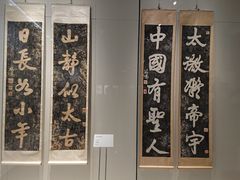 太微聯帝宇
中國有聖人
山靜似太古
日長如小年